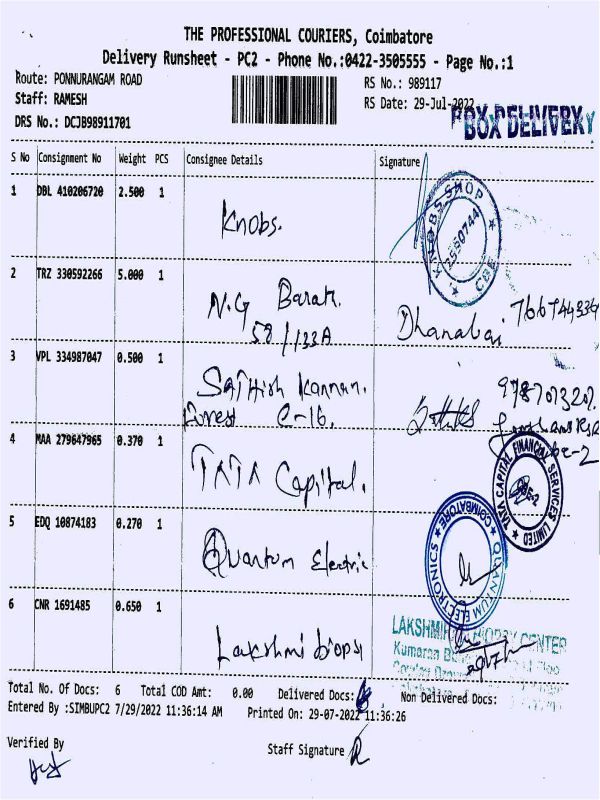 THE PROFESSIONAL COURIERS, Coimbatore
Delivery Runsheet - PC2 - Phone No.:0422-3505555 - Page No.:1
Route: PONNURANGAM ROAD
RS No.: 989117
Staff: RAMESH
RS Date: 29-Jul-2022
BOX DELIVERY
DRS No.: DCJB98911701
S No Consignment No Weight PCS Consignee Details Signature
1 DBL 410206720 2.500 1 Knobs.
KNOBS SHOP CBE
2560744
2 TRZ 330592266 5.000 1 N.G Barak.
58/133A
Dhanabai
3 VPL 334987047 0.500 1 Sathish Kannan.
Forest C-16.
4 MAA 279647965 0.370 1 TATA Capital.
TATA CAPITAL FINANCIAL SERVICES LIMITED
5 EDQ 10874183 0.270 1 Quantum Electric
QUANTUM ELECTRONICS COIMBATORE
6 CNR 1691485 0.650 1 Lakshmi biopsy
LAKSHMI BIOPSY CENTER
Kumaran
Total No. Of Docs: 6 Total COD Amt: 0.00 Delivered Docs: 6 Non Delivered Docs:
Entered By :SIMBUPC2 7/29/2022 11:36:14 AM Printed On: 29-07-2022 11:36:26
Verified By
Staff Signature